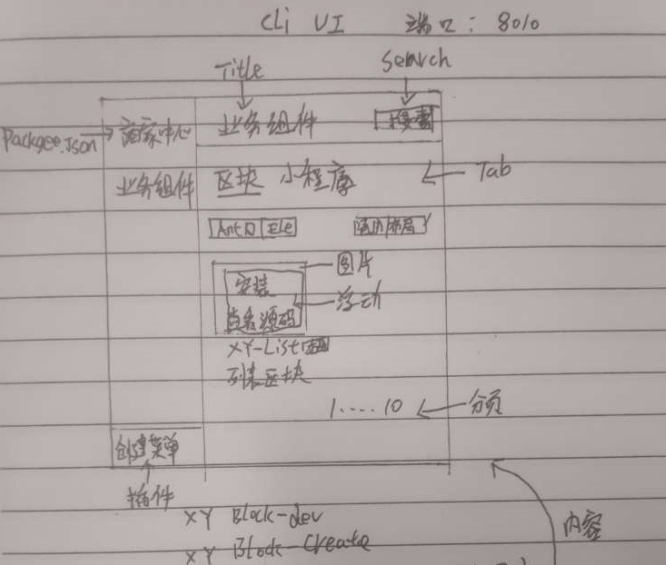 CLi UI 端口: 8010
Title
Search
Packgee.Json
商家中心
业务组件
搜索
业务组件
区块 小程序
Tab
AntD Ele
布局
图片
安装
查看源码
浮动
XY-List
列表区块
1.....10
分页
创建菜单
插件
XY Block-dev
XY Block-Create
内容